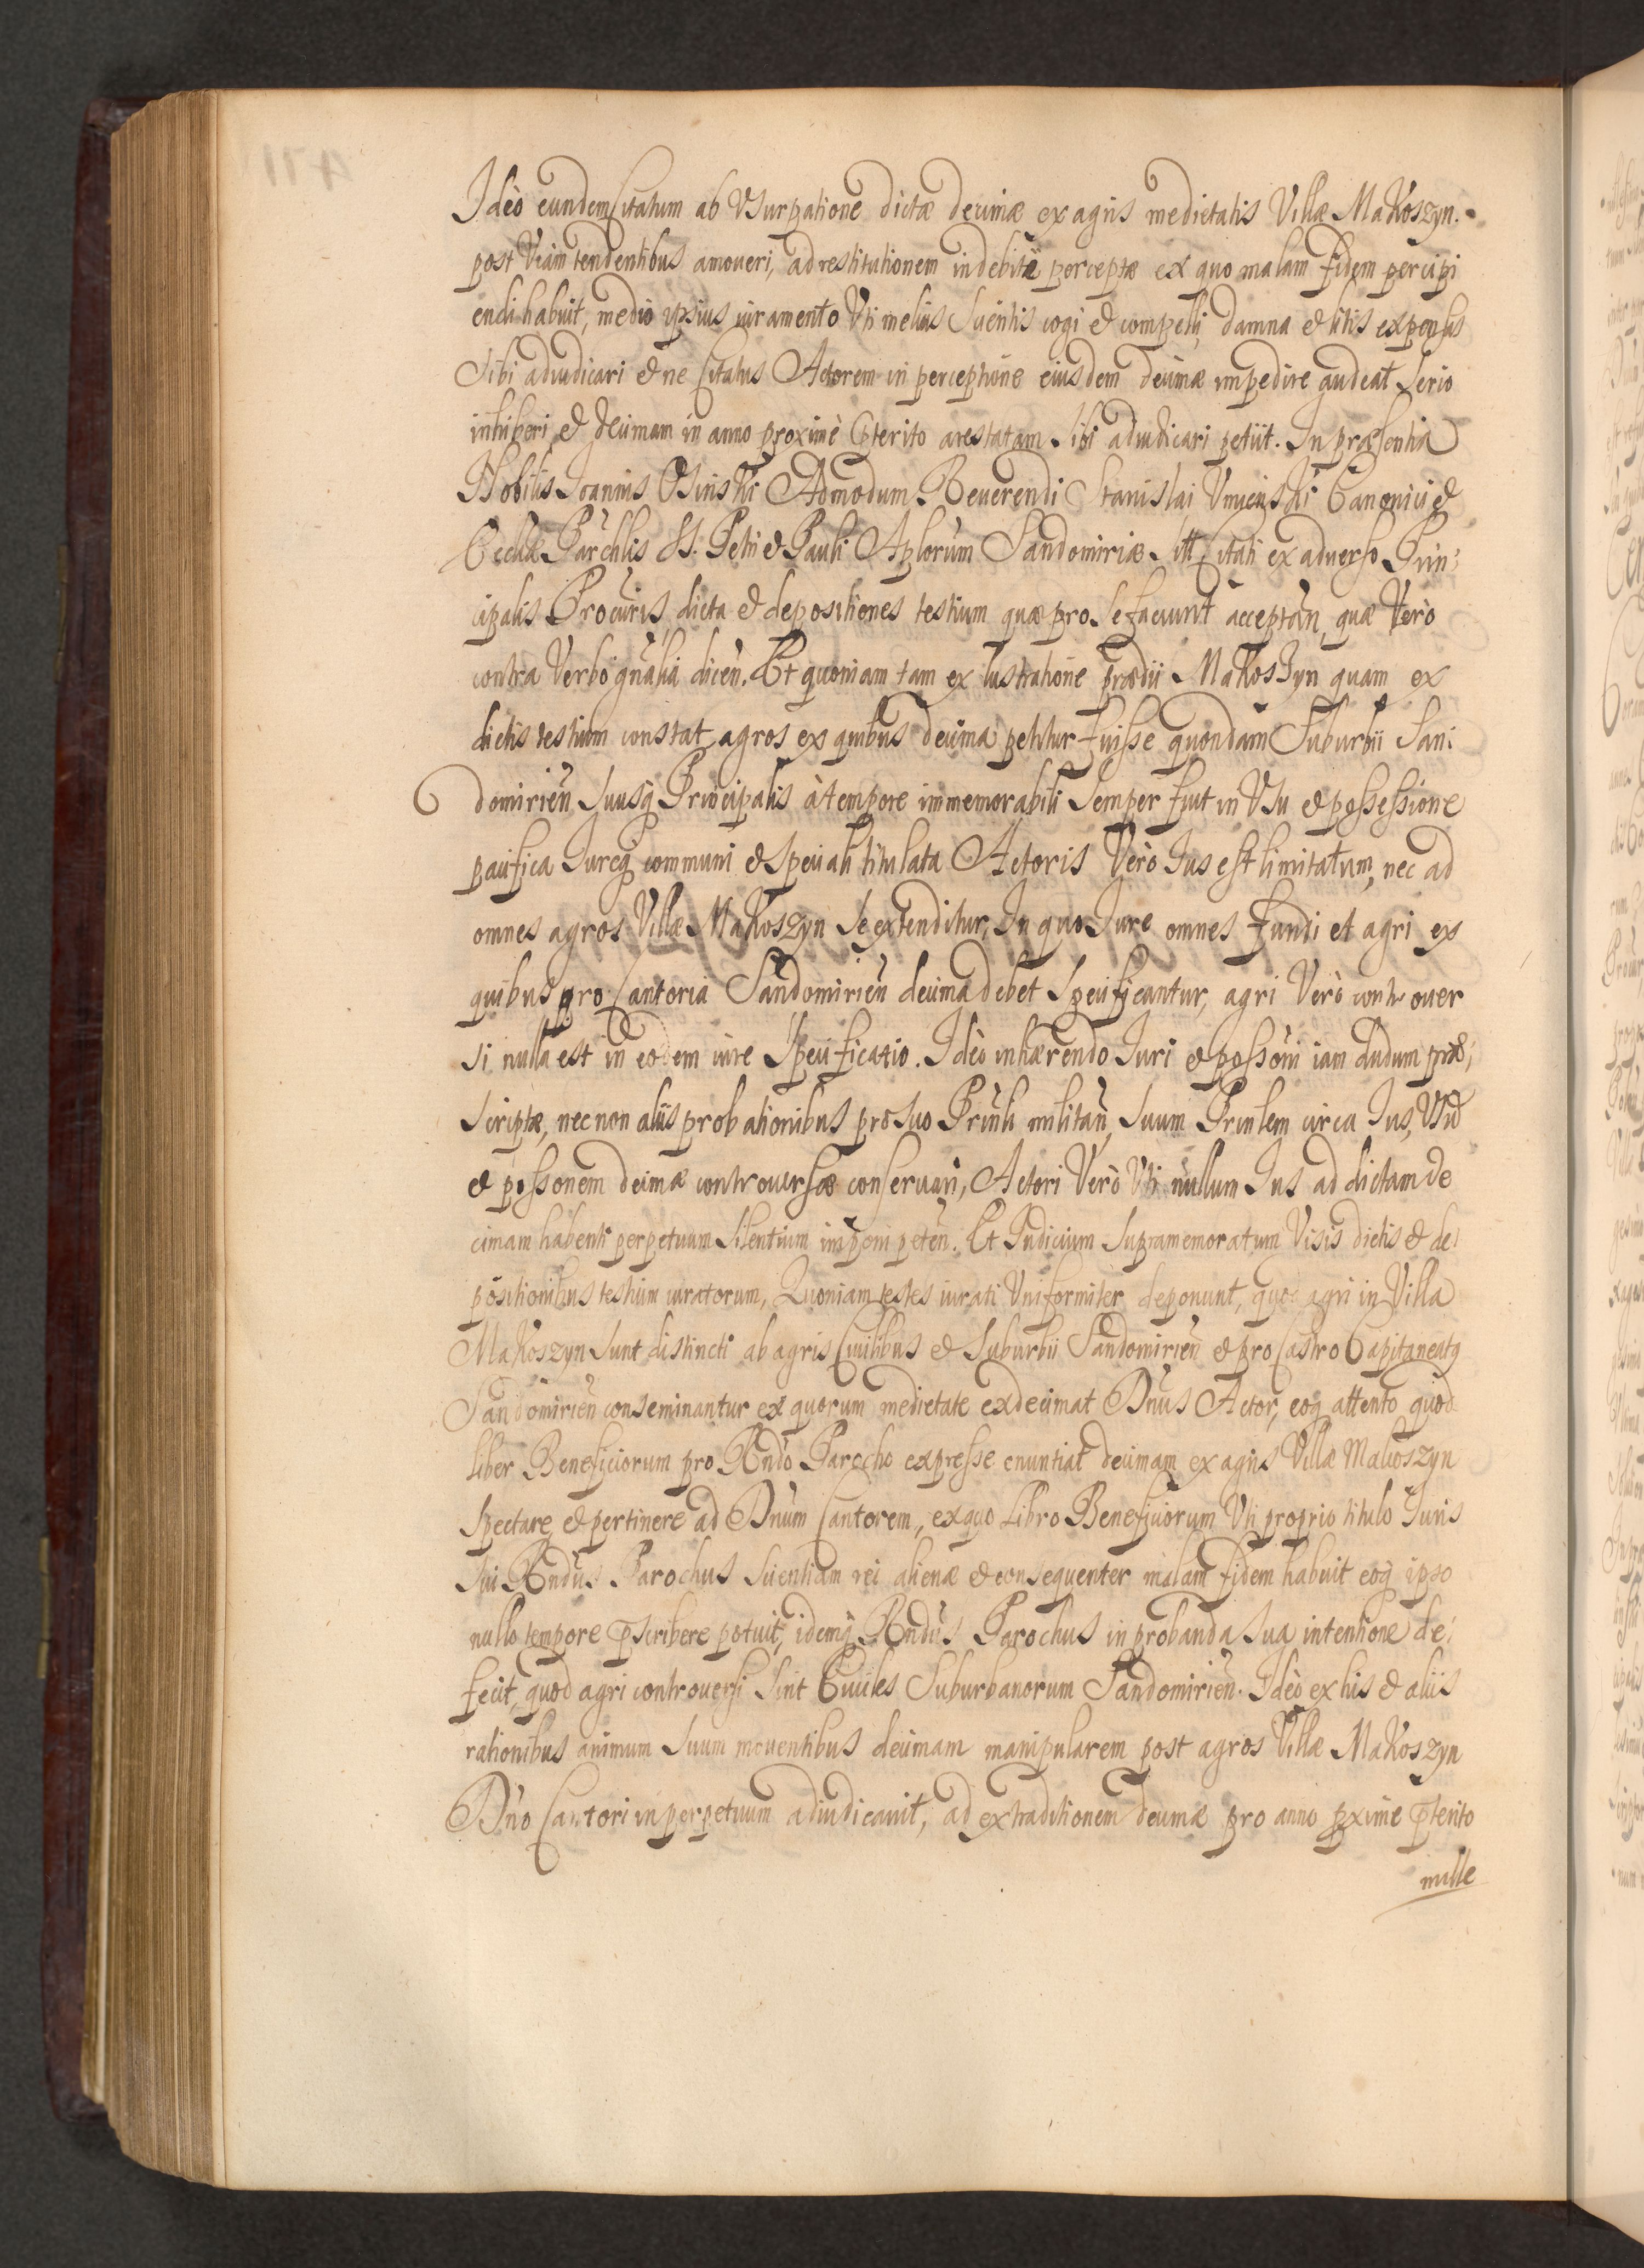 Ideò eundem Citatum ab Vsurpatione dictæ decimæ ex agris medietatis Villæ Makoszyn
post Viam tendentibus amoueri, ad restitutionem indebitè perceptæ ex quo malam fidem percipi
endi habuit, medio ipsius iuramento Vti melius Scientis cogi & compelli, damna & litis expensas
Sibi adiudicari & ne Citatus Actorem in perceptione eiusdem decimæ impedire audeat Serio
inhiberi & decimam in anno proximè præterito arestatam Sibi adiudicari petiit. In præsentia
Nobilis Joannis Osinski Admodum Reuerendi Stanislai Canonici &
Eccliæ Parchlis SS. Petri & Pauli Aplorum Sandomiriæ Citati ex aduerso Prin
cipalis Procuris dicta & depositiones testium quæ pro Se faciunt acceptan, quæ Verò
contra Verbo gnalia dicen. Et quoniam tam ex lustratione prædii Makoszyn quam ex
dictis testium constat agros ex quibus decima petitur fuisse quondam Suburbii San
domirien Suusq Principalis à tempore immemorabili Semper fuit in Vsu & possessione
pacifica Jureq communi & Speciali titulata Actoris Verò Jus est limitatum, nec ad
omnes agros Villæ Makoszyn Se extenditur, In quo Jure omnes fundi et agri ex
quibus pro Cantoria Sandomirien decima debet Specificantur, agri Verò controuer
si nulla est in eodem iure Specificatio. Ideò inhærendo Juri & possoni iam dudum præ
scriptæ, nec non aliis probationibus pro Suo Prinli militan, Suum Prinlem circa Jus, Vsu
& possonem decimæ controuersæ conseruari, Actori Verò Vti nullum Jus ad dictam de
cimam habenti perpetuum Silentium imponi peten. Et Judicium Supramemoratum Visis dictis & de
positionibus testium iuratorum, Quoniam testes iurati Vniformiter deponunt, quod agri in Villa
Makoszyn Sunt distincti ab agris Ciuilibus & Suburbii Sandomirien & pro Castro Capitaneatq
Sandomirien conseminantur ex quorum medietate exdecimat Dnus Actor, eoq attento quod
liber Beneficiorum pro Rndo Parocho expresse enuntiat decimam ex agris Villæ Makoszyn
Spectare & pertinere ad Dnum Cantorem, ex quo Libro Beneficiorum Vti proprio titulo Juris
Sui Rndus Parochus Scientiam rei alienæ & consequenter malam fidem habuit eoq ipso
nullo tempore pscribere potuit, idemq Rndus Parochus in probanda Sua intentione de
fecit, quod agri controuersi Sint Ciuiles Suburbanorum Sandomirien. Ideò ex his & aliis
rationibus animum Suum mouentibus decimam manipularem post agros Villæ Makoszyn
Dno Cantori in perpetuum adiudicauit, ad extraditionem decimæ pro anno pxime pterito
mille